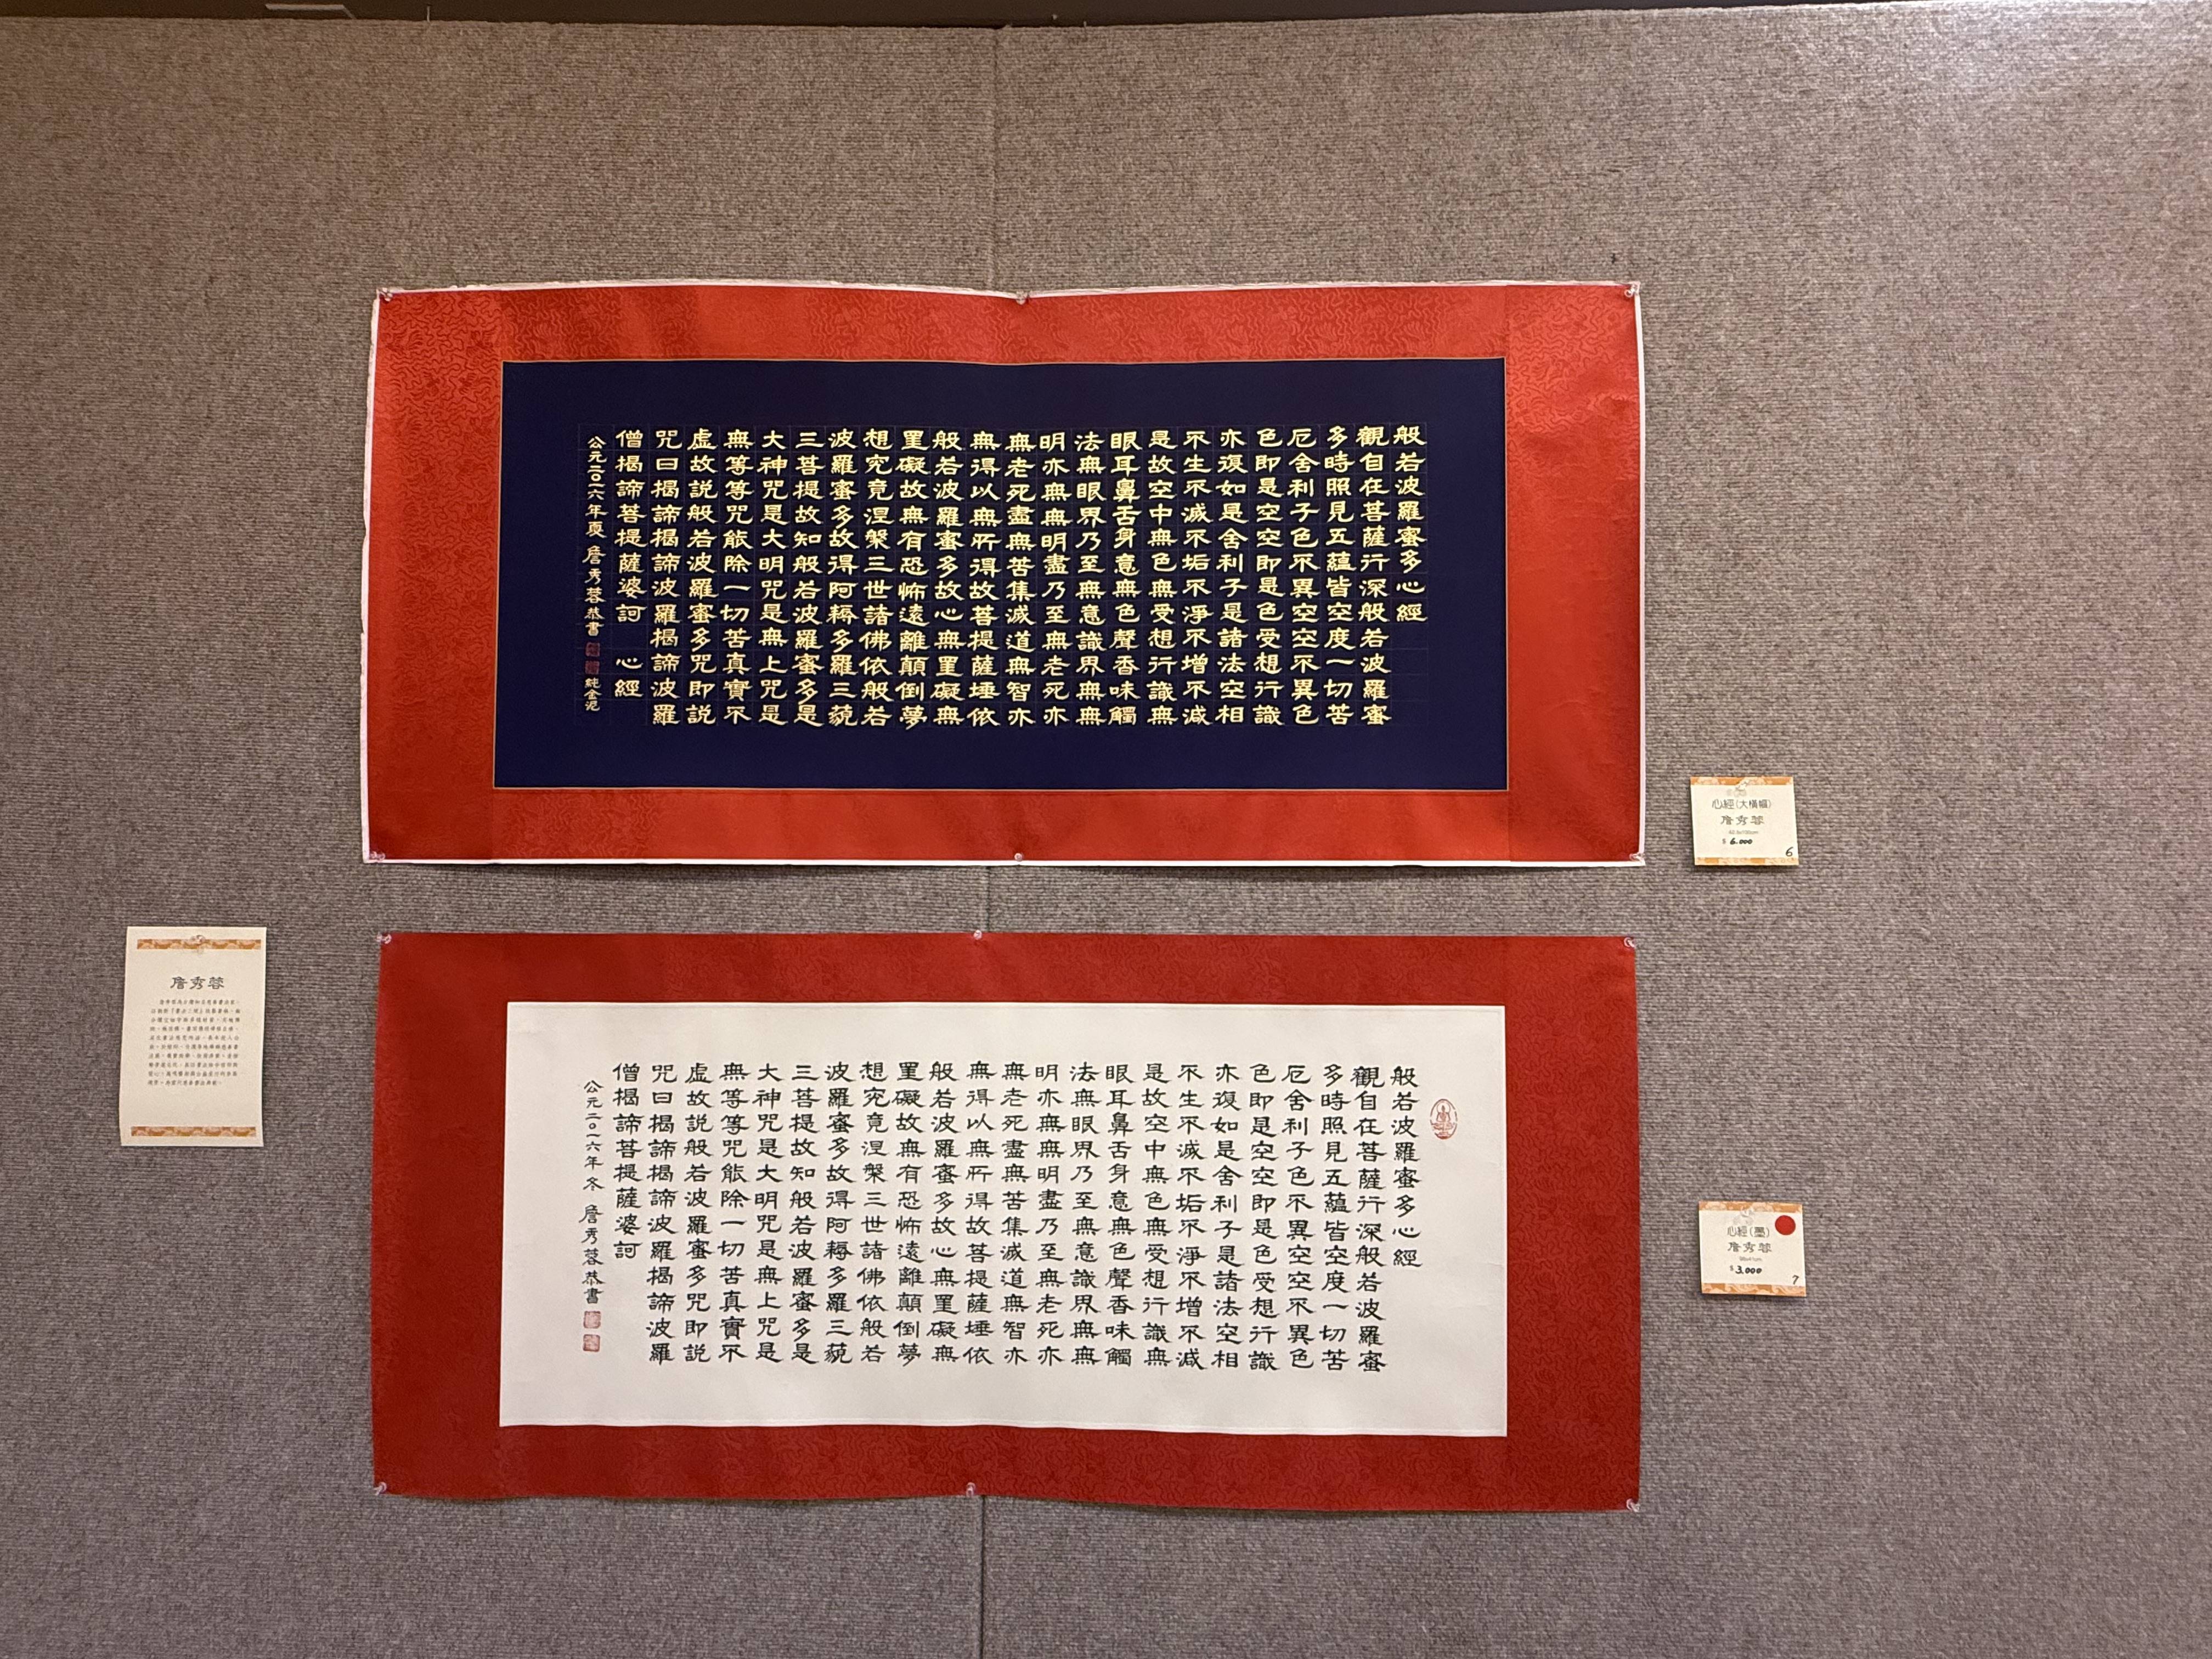 般若波羅蜜多心經
觀自在菩薩行深般若波羅蜜
多時照見五蘊皆空度一切苦
厄舍利子色不異空空不異色
色即是空空即是色受想行識
亦復如是舍利子是諸法空相
不生不滅不垢不淨不增不減
是故空中無色無受想行識無
眼耳鼻舌身意無色聲香味觸
法無眼界乃至無意識界無無
明亦無無明盡乃至無老死亦
無老死盡無苦集滅道無智亦
無得以無所得故菩提薩埵依
般若波羅蜜多故心無罣礙無
罣礙故無有恐怖遠離顛倒夢
想究竟涅槃三世諸佛依般若
波羅蜜多故得阿耨多羅三藐
三菩提故知般若波羅蜜多是
大神咒是大明咒是無上咒是
無等等咒能除一切苦真實不
虛故說般若波羅蜜多咒即說
咒曰揭諦揭諦波羅揭諦波羅
僧揭諦菩提薩婆訶 心經
公元二〇一六年夏 詹秀蓉恭書 純金泥
心經(大橫幅)
詹秀蓉
$ 6.000
6
詹秀蓉
般若波羅蜜多心經
觀自在菩薩行深般若波羅蜜
多時照見五蘊皆空度一切苦
厄舍利子色不異空空不異色
色即是空空即是色受想行識
亦復如是舍利子是諸法空相
不生不滅不垢不淨不增不減
是故空中無色無受想行識無
眼耳鼻舌身意無色聲香味觸
法無眼界乃至無意識界無無
明亦無無明盡乃至無老死亦
無老死盡無苦集滅道無智亦
無得以無所得故菩提薩埵依
般若波羅蜜多故心無罣礙無
罣礙故無有恐怖遠離顛倒夢
想究竟涅槃三世諸佛依般若
波羅蜜多故得阿耨多羅三藐
三菩提故知般若波羅蜜多是
大神咒是大明咒是無上咒是
無等等咒能除一切苦真實不
虛故說般若波羅蜜多咒即說
咒曰揭諦揭諦波羅揭諦波羅
僧揭諦菩提薩婆訶
公元二〇一六年冬 詹秀蓉恭書
心經(墨)
詹秀蓉
$ 3.000
7